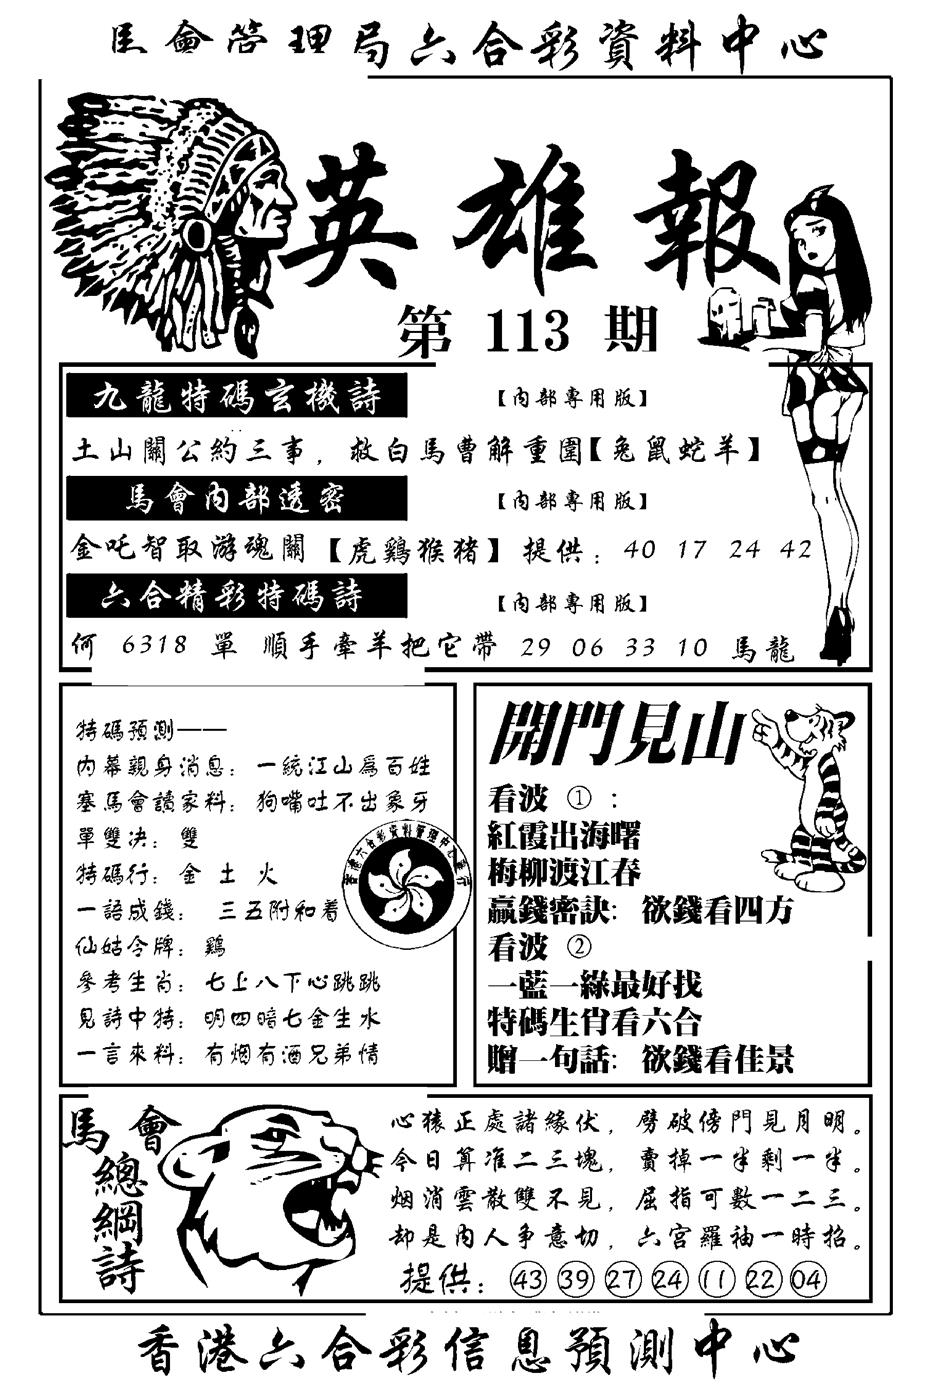 馬會管理局六合彩資料中心
英雄報
第 113 期
九龍特碼玄機詩 【內部專用版】
土山關公約三事，救白馬曹解重圍【兔鼠蛇羊】
馬會內部透密 【內部專用版】
金吒智取游魂關【虎鷄猴猪】提供：40 17 24 42
六合精彩特碼詩 【內部專用版】
何 6318 單 順手牽羊把它帶 29 06 33 10 馬龍
特碼預測——
內幕親身消息：一統江山爲百姓
塞馬會讀家料：狗嘴吐不出象牙
單雙决：雙
特碼行：金 土 火
一語成錢： 三五附和着
仙姑令牌：鷄
參考生肖：七上八下心跳跳
見詩中特：明四暗七金生水
一言來料：有烟有酒兄弟情
開門見山
看波 ①：
紅霞出海曙
梅柳渡江春
贏錢密訣：欲錢看四方
看波 ②
一藍一綠最好找
特碼生肖看六合
贈一句話：欲錢看佳景
馬會
總綱詩
心猿正處諸緣伏，劈破傍門見月明。
今日算准二三塊，賣掉一半剩一半。
烟消雲散雙不見，屈指可數一二三。
却是內人争意切，六宮羅袖一時招。
提供：㊸ ㊴ ㉗ ㉔ ⑪ ㉒ 04
香港六合彩信息預測中心